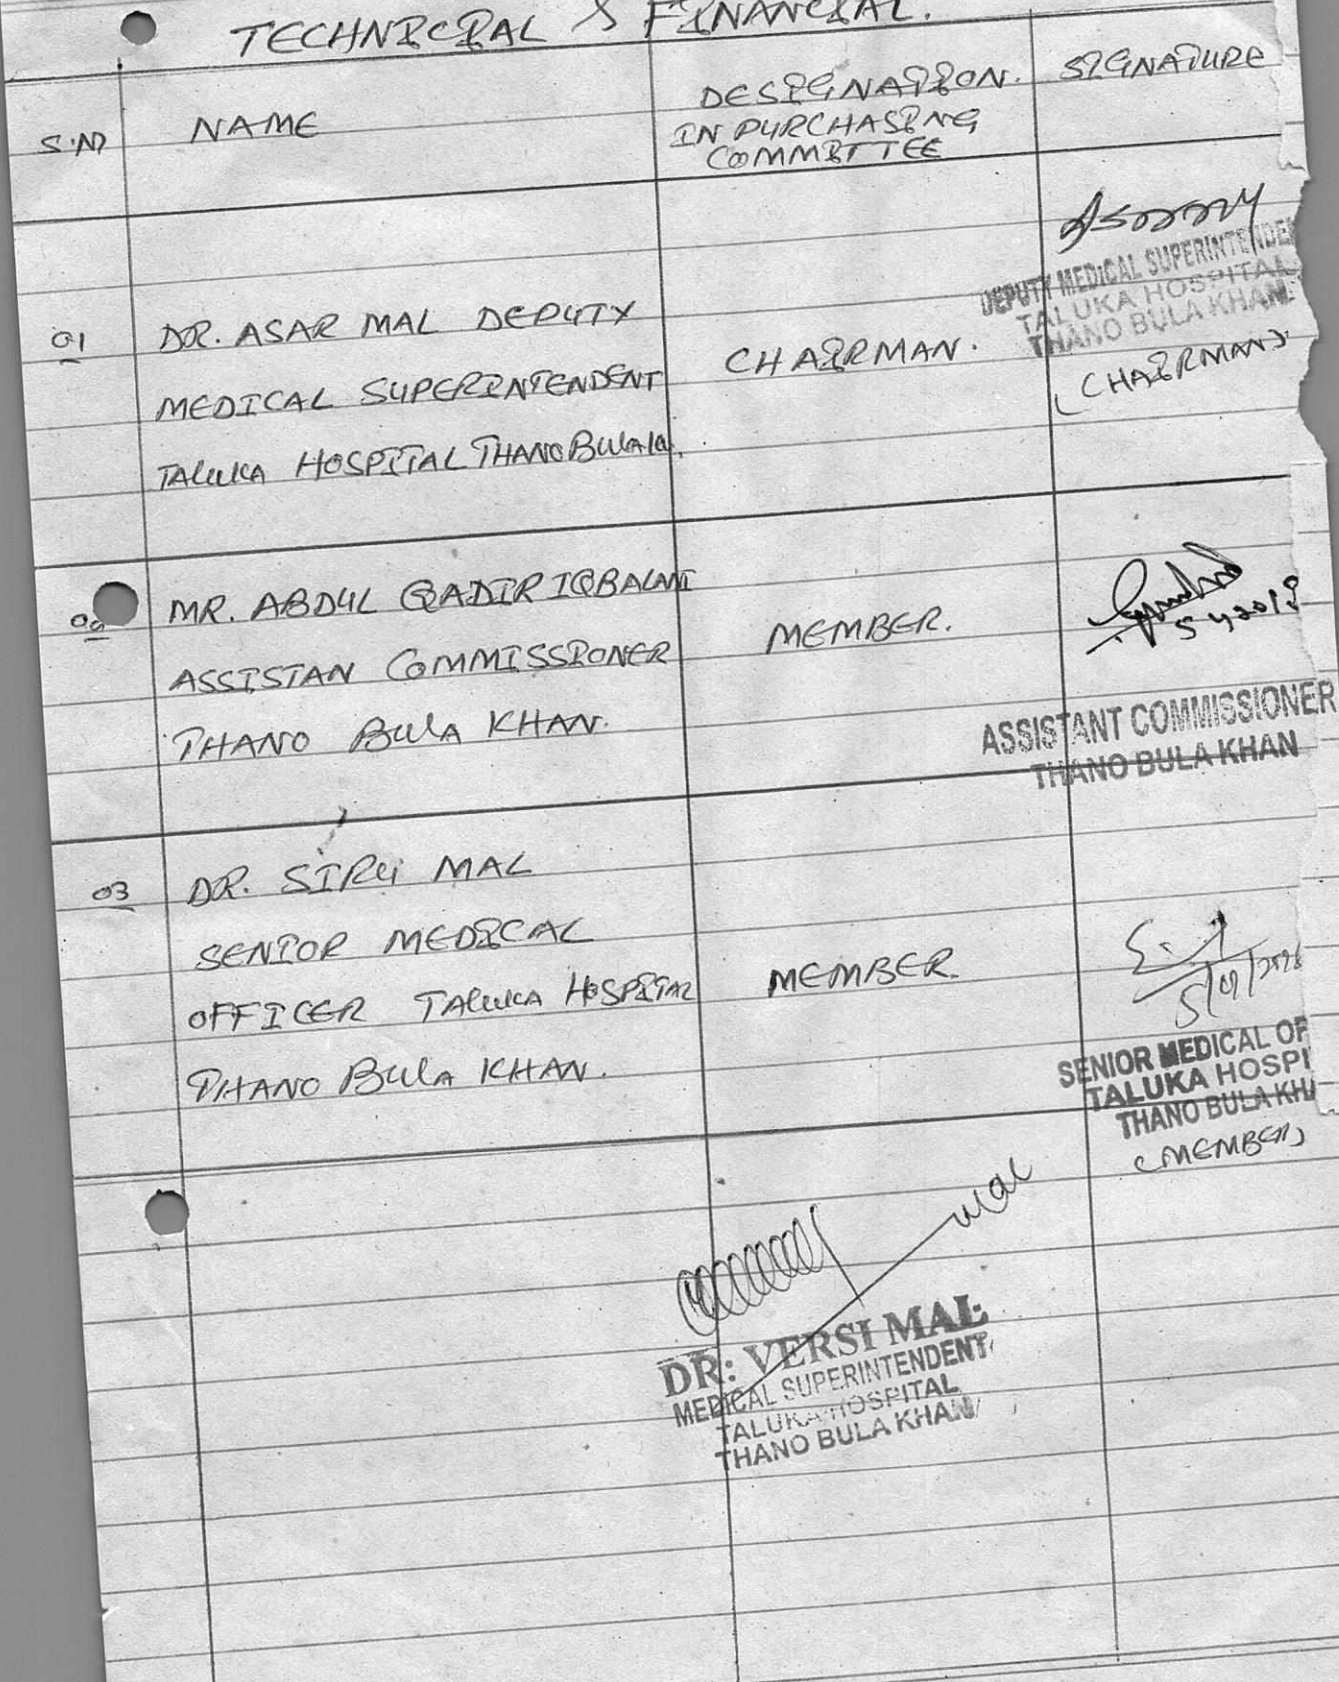 TECHNICIAL & FINANCIAL.
S.NO NAME DESIGNATION. IN PURCHASING COMMITTEE SIGNATURE
DEPUTY MEDICAL SUPERINTENDE
TALUKA HOSPITAL
THANO BULA KHAN.
(CHAIRMAN)
01 DR. ASAR MAL DEPUTY
MEDICAL SUPERINTENDENT
TALUKA HOSPITAL THANO BULA
CHAIRMAN.
MR. ABDUL QADIR IQBALANI
ASSISTAN COMMISSIONER
THANO BULA KHAN.
MEMBER.
ASSISTANT COMMISSIONER
THANO BULA KHAN
03 DR. SIRU MAL
SENIOR MEDICAL
OFFICER TALUKA HOSPITAL
THANO BULA KHAN.
MEMBER.
SENIOR MEDICAL OF
TALUKA HOSPI
THANO BULA KHA
(MEMBER)
DR: VERSI MAL
MEDICAL SUPERINTENDENT
TALUKA HOSPITAL
THANO BULA KHAN